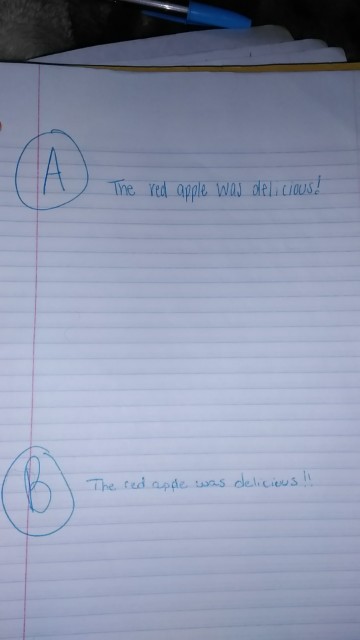 A
The red apple was delicious!
B
The red apple was delicious!!